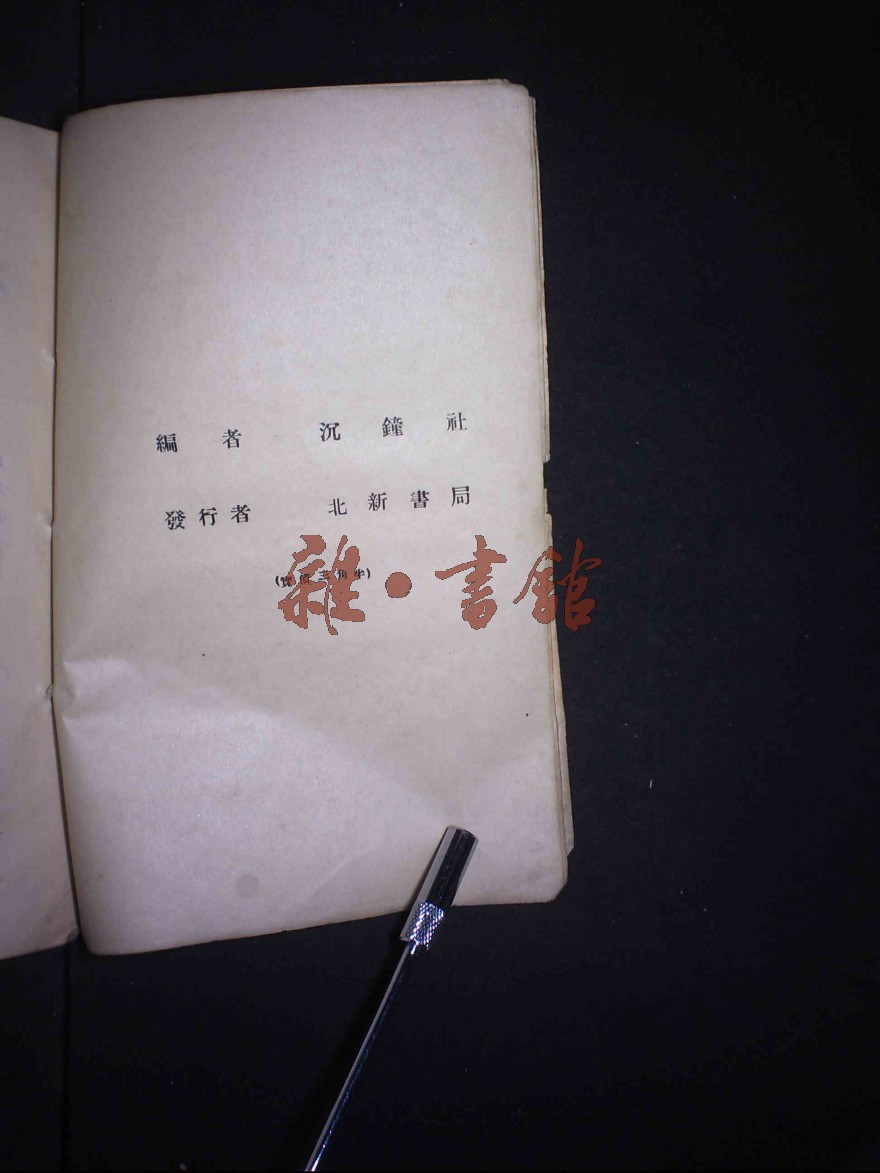 編者 沉鐘社
發行者 北新書局
(實價三角半)
雜·書館